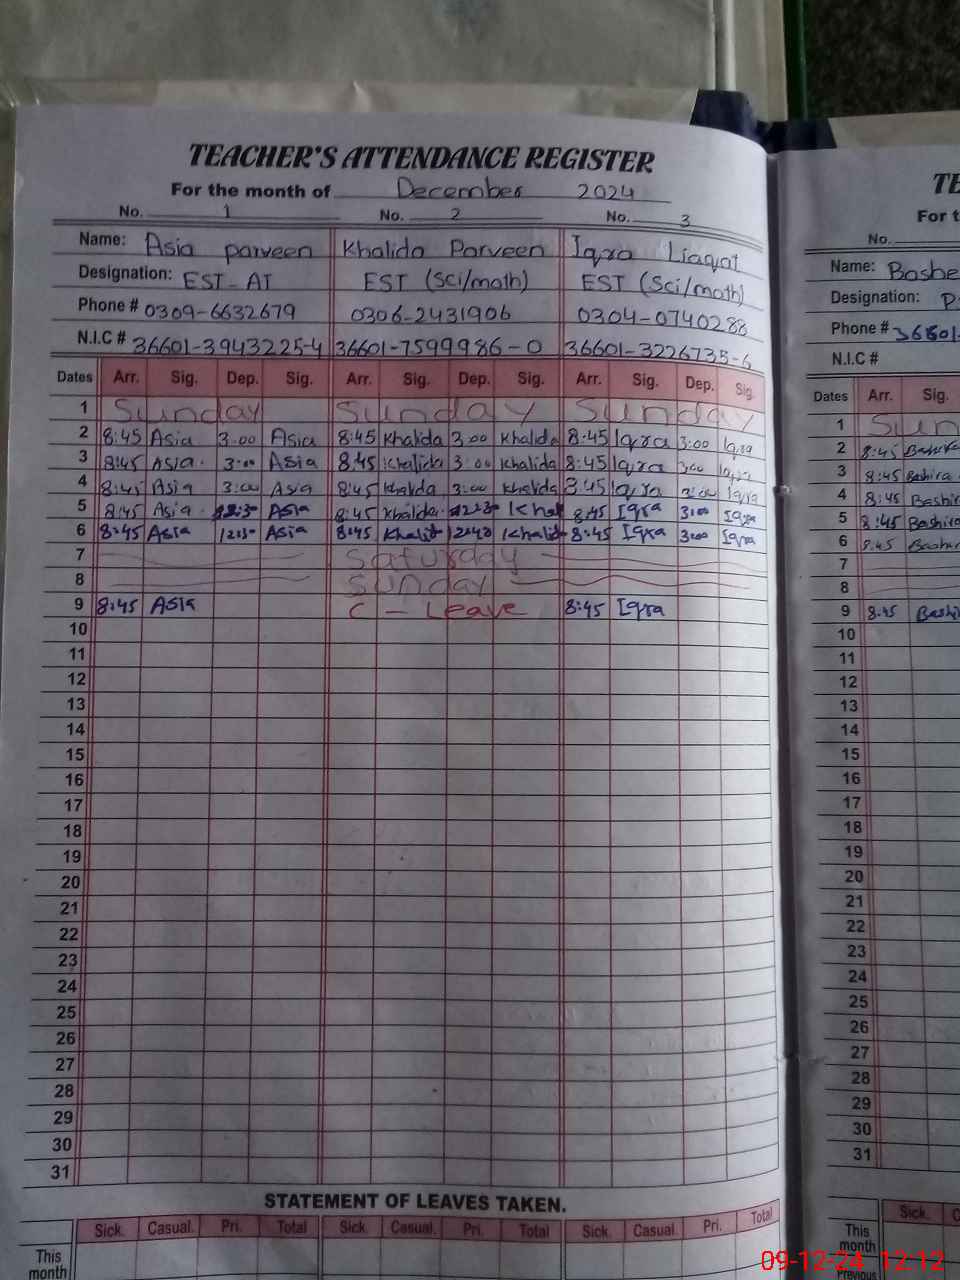 TEACHER'S ATTENDANCE REGISTER
For the month of December 2024
No. 1 No. 2 No. 3
Name: Asia parveen Khalida Parveen Iqra Liaqat
Designation: EST-AT EST (Sci/math) EST (Sci/math)
Phone # 0309-6632679 0306-2431906 0304-0740288
N.I.C # 36601-3943225-4 36601-7599986-0 36601-3226735-6
Dates Arr. Sig. Dep. Sig. Arr. Sig. Dep. Sig. Arr. Sig. Dep. Sig.
1 Sunday Sunday Sunday
2 8:45 Asia 3:00 Asia 8:45 Khalida 3:00 Khalida 8:45 Iqra 3:00 Iqra
3 8:45 Asia. 3:00 Asia 8:45 Khalida 3:00 Khalida 8:45 Iqra 3:00 Iqra
4 8:45 Asia 3:00 Asia 8:45 Khalida 3:00 Khalida 8:45 Iqra 3:00 Iqra
5 8:45 Asia. Asia 8:45 Khalida. Khal 8:45 Iqra 3:00 Iqra
6 8:45 Asia 12:30 Asia 8:45 Khalid Khalid 8:45 Iqra 3:00 Iqra
7 Saturday
8 Sunday
9 8:45 Asia C - Leave 8:45 Iqra
10
11
12
13
14
15
16
17
18
19
20
21
22
23
24
25
26
27
28
29
30
31
STATEMENT OF LEAVES TAKEN.
Sick. Casual. Pri. Total Sick. Casual. Pri. Total Sick. Casual. Pri. Total
This
month
TE
For t
No.
Name: Bashe
Designation: P
Phone # 36601-
N.I.C #
Dates Arr. Sig.
1 Sun
2 8:45 Bashira
3 8:45 Bashira
4 8:45 Bashir
5 8:45 Bashira
6 8:45 Bashir
7
8
9 8:45 Bashi
10
11
12
13
14
15
16
17
18
19
20
21
22
23
24
25
26
27
28
29
30
31
Sick. C
This
month
Previous
09-12-24 12:12